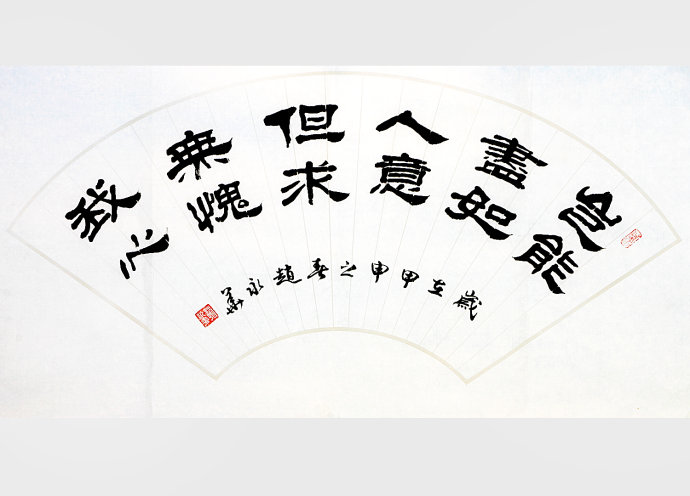 豈能
盡如
人意
但求
無愧
我心
歲在甲申之春趙永華